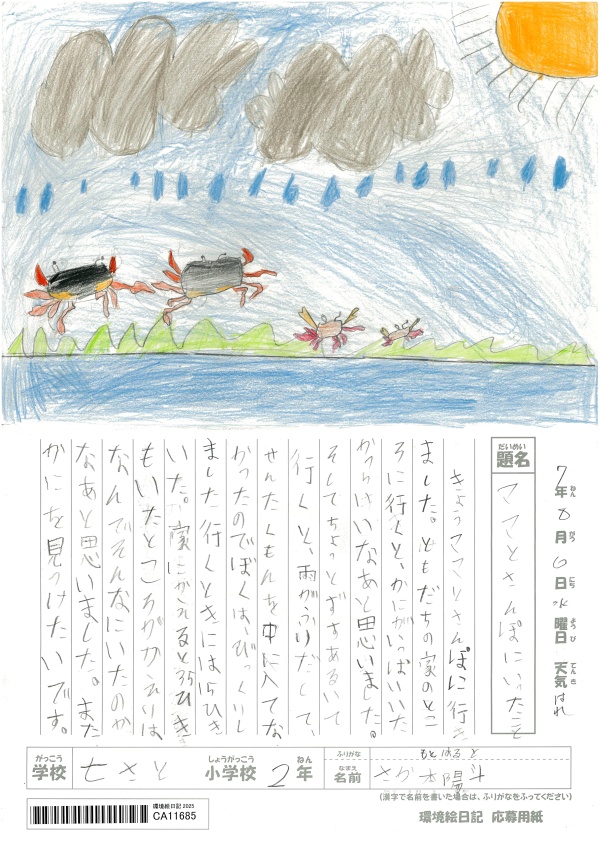 7年8月6日水曜日 天気はれ
ねん がつ にち ようび てんき
だいめい
題名 ママとさんぽにいったこと
きょうママとさんぽに行き
ました。ともだちの家のとこ
ろに行くと、かにがいっぱいいた
からいっぱいなあと思いました。
そしてちょっとずすあるいて
行くと、雨がふりだして、
せんたくもんを中に入てな
かったのでぼくは、びっくりし
ました行くときには15ひき
いた。家にかえると35ひき
もいたところがかえりは、
なんでそんなにいたのか
なあと思いました。また
かにを見つけたいです。
がっこう しょうがっこう ねん ふりがな もとはると
学校 七さと 小学校 2年
なまえ
名前 さか本陽斗
(漢字で名前を書いた場合は、ふりがなをふってください)
環境絵日記 2025
CA11685
環境絵日記 応募用紙